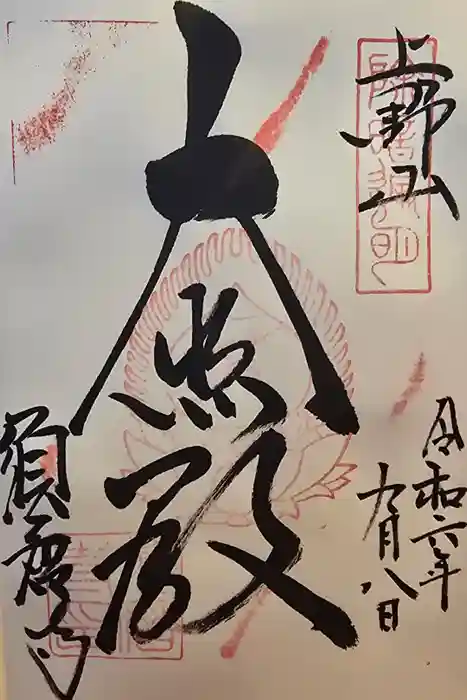 上野山
除暗遍明
大悲殿
令和六年
九月八日
須磨寺